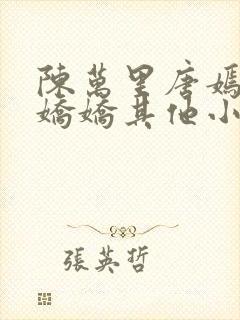 陳萬里唐嫣
嬌嬌其他小
張英哲